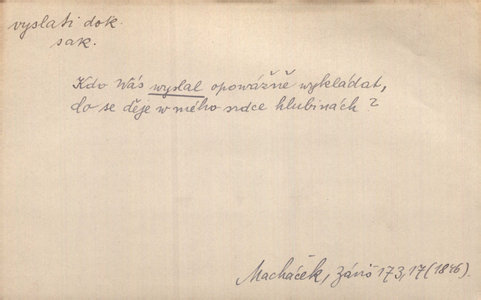 vyslati dok.
sak.
Kdo Wás wyslal opowážně wykládat,
co se děje w mého srdce hlubinách?
Macháček, Záviš 173,17 (1846)